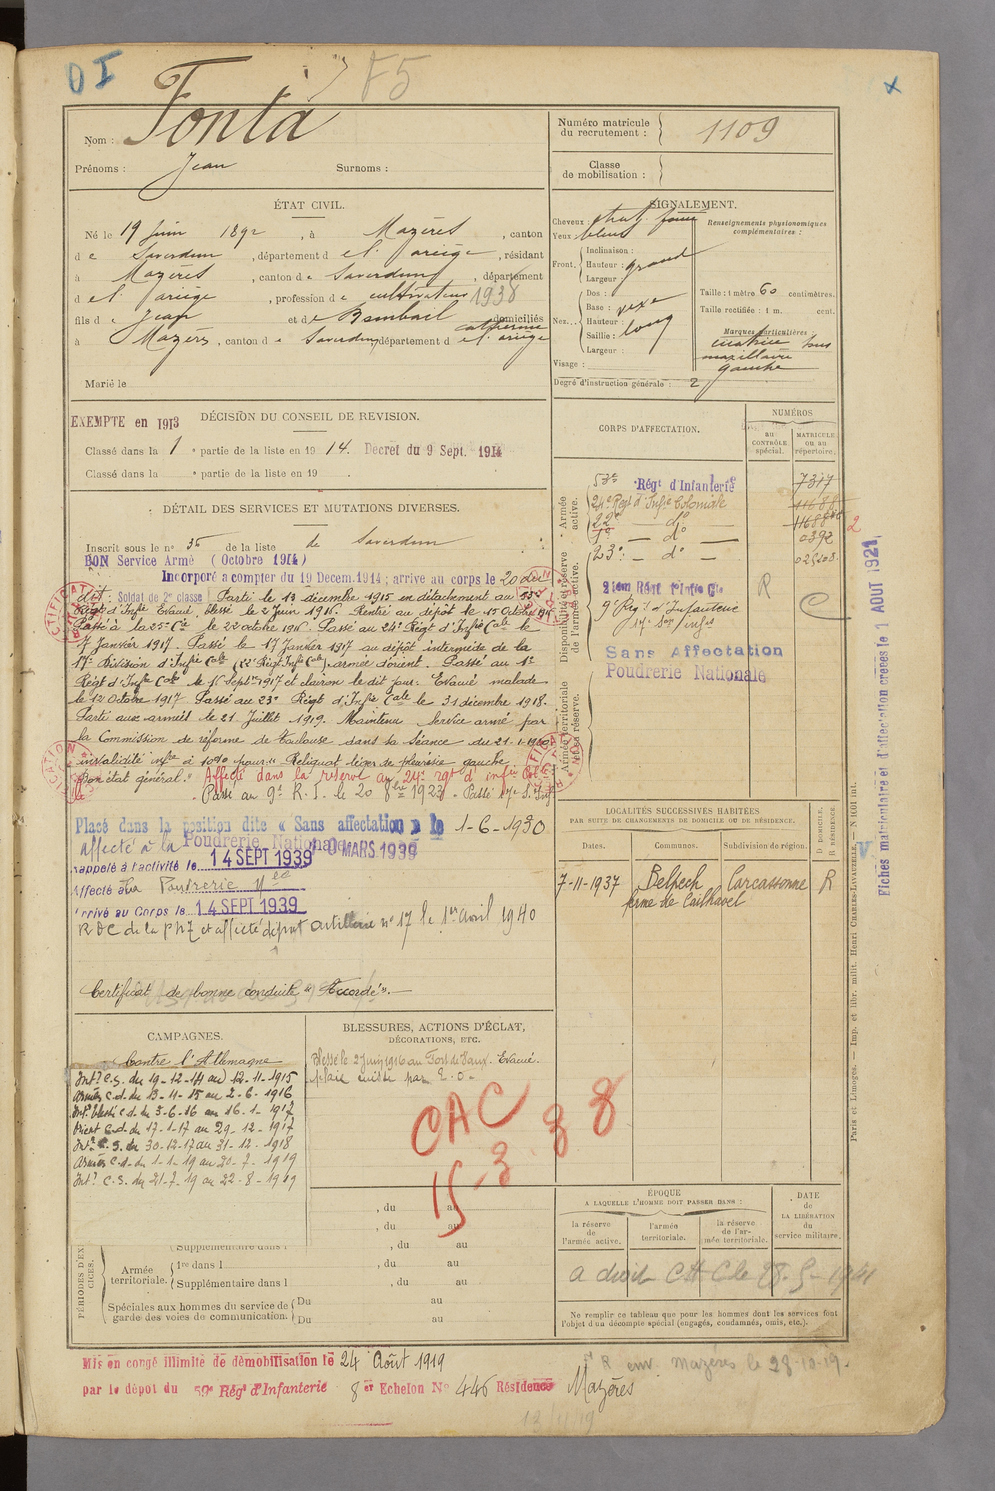 OI
F5
Nom : Fonta
Prénoms : Jean Surnoms :
Numéro matricule du recrutement : 1109
Classe de mobilisation :
ÉTAT CIVIL.
Né le 19 juin 1892, à Mazères, canton
de Saverdun, département de l'Ariège, résidant
à Mazères, canton de Saverdun, département
de l'Ariège, profession de cultivateur 1938
fils de Jean et de Rambail Catherine domiciliés
à Mazères, canton de Saverdun, département de l'Ariège
Marié le
SIGNALEMENT.
Cheveux : chat. foncé
Yeux bleus
Front. Inclinaison :
Hauteur : grand
Largeur :
Nez. Dos :
Base : vexe
Hauteur : long
Saillie :
Largeur :
Visage :
Renseignements physionomiques complémentaires :
Taille : 1 mètre 60 centimètres.
Taille rectifiée : 1 m. cent.
Marques particulières :
cicatrice sous
maxillaire
gauche
Degré d'instruction générale : 2
EXEMPTÉ en 1913 DÉCISION DU CONSEIL DE REVISION.
Classé dans la 1 e partie de la liste en 1914. Décret du 9 Sept. 1914
Classé dans la e partie de la liste en 19
DÉTAIL DES SERVICES ET MUTATIONS DIVERSES.
Inscrit sous le n° 36 de la liste de Saverdun
BON Service Armé (Octobre 1914)
Incorporé à compter du 19 Décem. 1914 ; arrivé au corps le 20 du
dit : Soldat de 2e classe Parti le 13 décembre 1915 en détachement au 53e
Régt d'Infie Evacué blessé le 2 juin 1916. Rentré au dépôt le 15 Octobre 1916
Passé à la 25e Cie le 22 octobre 1916. Passé au 24e Régt d'Infie Cale le
7 Janvier 1917. Passé le 17 Janvier 1917 au dépôt intermède de la
17e Division d'Infie Cale (22e Régt Infie Cale) armée d'orient. Passé au 1er
Régt d'Infie Cale le 16 Septbre 1917 et clairon le dit jour. Evacué malade
le 12 Octobre 1917. Passé au 23e Régt d'Infie Cale le 31 décembre 1918.
Parti aux armées le 21 Juillet 1919. Maintenu service armé par
la Commission de réforme de Toulouse dans sa séance du 21-1-1920
invalidité infre à 10% pour « Reliquat léger de pleurésie gauche
Bon état général. » Affecté dans la réserve au 24e rgt d'infie Cole
Passé au 9e R.I. le 20 8bre 1923. Passé 17e S. Inf
Placé dans la position dite « Sans affectation » le 1-6-1930
affecté à la Poudrerie Nationale 10 MARS 1939
Rappelé à l'activité le 14 SEPT 1939
Affecté à la Poudrerie Nle
Arrivé au Corps le 14 SEPT 1939
RDC de la PNT et affecté dépôt artillerie n° 17 le 1er avril 1940
Certificat de bonne conduite « Accordé ».
CORPS D'AFFECTATION.
NUMÉROS
au CONTRÔLE spécial.
MATRICULE ou au répertoire.
Armée active.
53e Régt d'Infanterie 7317
24e Régt d'Infie Coloniale 11688
22e — do — 11688 bis 2
1er — do — 0392
23e — do —
Disponibilité et réserve de l'armée active.
24em Régt d'Infie Cle R C
9e Rég. d'Infanterie
17e Son infrs
Sans Affectation
Poudrerie Nationale
Armée territoriale et sa réserve.
LOCALITÉS SUCCESSIVES HABITÉES
PAR SUITE DE CHANGEMENTS DE DOMICILE OU DE RÉSIDENCE.
Dates. Communes. Subdivision de région. D DOMICILE. R RÉSIDENCE
7-11-1937 Belpech Carcassonne R
ferme de Cailhavel
CAMPAGNES.
Contre l'Allemagne
Intr C.S. du 19-12-14 au 12-11-1915
Armées C.d. du 13-11-15 au 2-6-1916
Intr blessé C.d. du 3-6-16 au 16-1-1917
Orient C.d. du 17-1-17 au 29-12-1917
Intr C.S. du 30-12-17 au 31-12-1918
Armées C.d. du 1-1-19 au 20-7-1919
Intr C.S. du 21-7-19 au 22-8-1919
BLESSURES, ACTIONS D'ÉCLAT,
DÉCORATIONS, ETC.
Blessé le 2 juin 1916 au Fort de Vaux. Evacué.
plaie cuisse par E.O.
CAC 88
15-3
, du au
, du au
PÉRIODES D'EXERCICES.
Supplémentaire dans l , du au
Armée territoriale. 1re dans l , du au
Supplémentaire dans l , du au
Spéciales aux hommes du service de garde des voies de communication. Du au
Du au
ÉPOQUE
A LAQUELLE L'HOMME DOIT PASSER DANS :
la réserve de l'armée active.
l'armée territoriale.
la réserve de l'armée territoriale.
DATE DE LA LIBÉRATION du service militaire.
a droit Ctt C le 28-5-1941
Ne remplir ce tableau que pour les hommes dont les services font
l'objet d'un décompte spécial (engagés, condamnés, omis, etc.).
Mis en congé illimité de démobilisation le 24 Août 1919
par le dépôt du 59e Régt d'Infanterie 8em Echelon No 446 Résidence Mazères
R env. Mazères le 28-10-19.
Paris et Limoges. — Imp. et libr. milit. Henri CHARLES-LAVAUZELLE. — N° 101 int.
Fiches matriculaire et d'affectation créées le 1 AOUT 1921